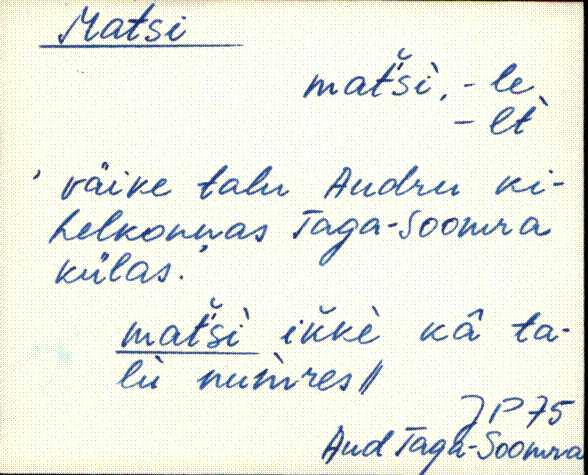 Matsi
mat̆'sì, - le
- lt̀
' väike talu Audru ki-
helkonnas Taga-Soomra
külas.'
mat̆'sì ik̆kè kâ ta-
lù num̀res //
JP 75
Aud Taga-Soomra